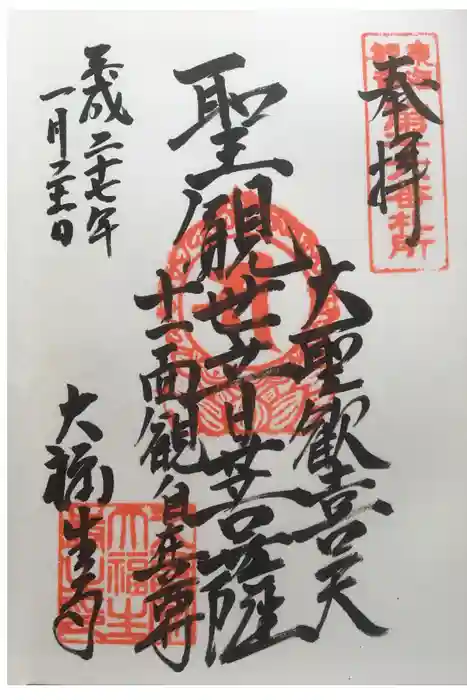 奉拝
大聖歓喜天
聖観世音菩薩
十一面観自在尊
平成二十七年
一月二十二日
大福生寺
大福生